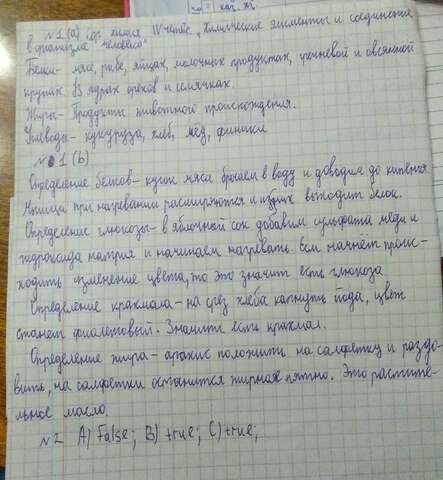 N1 (a) Сор химия IV четвс. "Химические элементы и соединение
в организме человека"
Белки- мясе, рыбе, яйцах, молочных продуктах, гречневой и овсянной
крупах. В ядрах орехов и семячках.
Жиры- Продукты животного происхождения.
Углеводы- кукуруза, хлеб, мёд, финики
N1 (b)
Определение белков- кусок мяса бросаем в воду и доводим до кипения
Мышцы при нагревании расширяются и из них выходит белок.
Определение глюкозы- в яблочной сок добавим сульфата меди и
гидроксида натрия и начинаем нагревать. Если начнёт проис-
ходить изменение цвета, то это значит есть глюкоза
Определение крахмала- на срез хлеба капнуть йода, цвет
станет фиолетовый. Значит есть крахмал.
Определение жира- арахис положить на салфетку и раздо-
вить, на салфетки останится жирная пятно. Это растите-
льное масло.
N2 A) False; B) true; C) true;